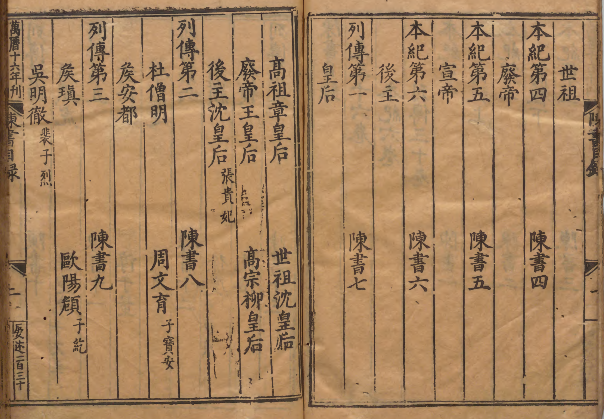 世祖
本紀第四 陳書四
廢帝
本紀第五 陳書五
宣帝
本紀第六 陳書六
後主
列傳第一 陳書七
皇后
髙祖章皇后 世祖沈皇后
廢帝王皇后 髙宗柳皇后
後主沈皇后 張貴妃
列傳第二 陳書八
杜僧明 周文育 子寶安
矦安都
列傳第三 陳書九
矦瑱 歐陽頠 子紇
吳明徹 裴子烈
萬曆十六年刊 陳書目録 二 二百三十